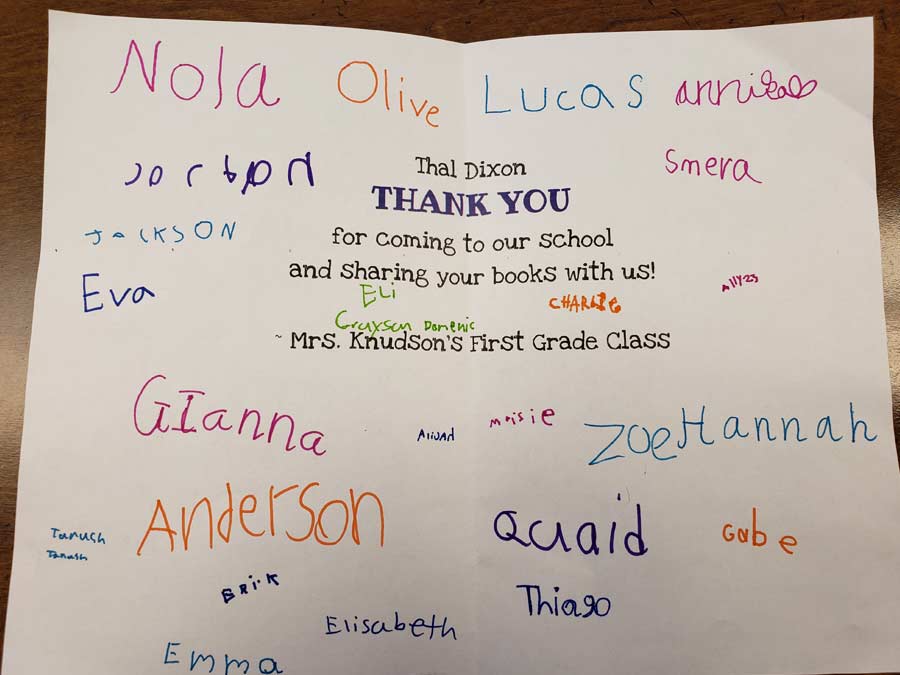 Nola Olive Lucas
Thal Dixon
Smera
THANK YOU
JACKSON
for coming to our school
and sharing your books with us!
Eva
ELI
CHARLIE
Grayson Domenic
~ Mrs. Knudson's First Grade Class
GIanna
Maisie
Zoe Hannah
Anderson
Quaid
Gabe
Tanush
Tanush
BRIK
Thiago
Elisabeth
Emma